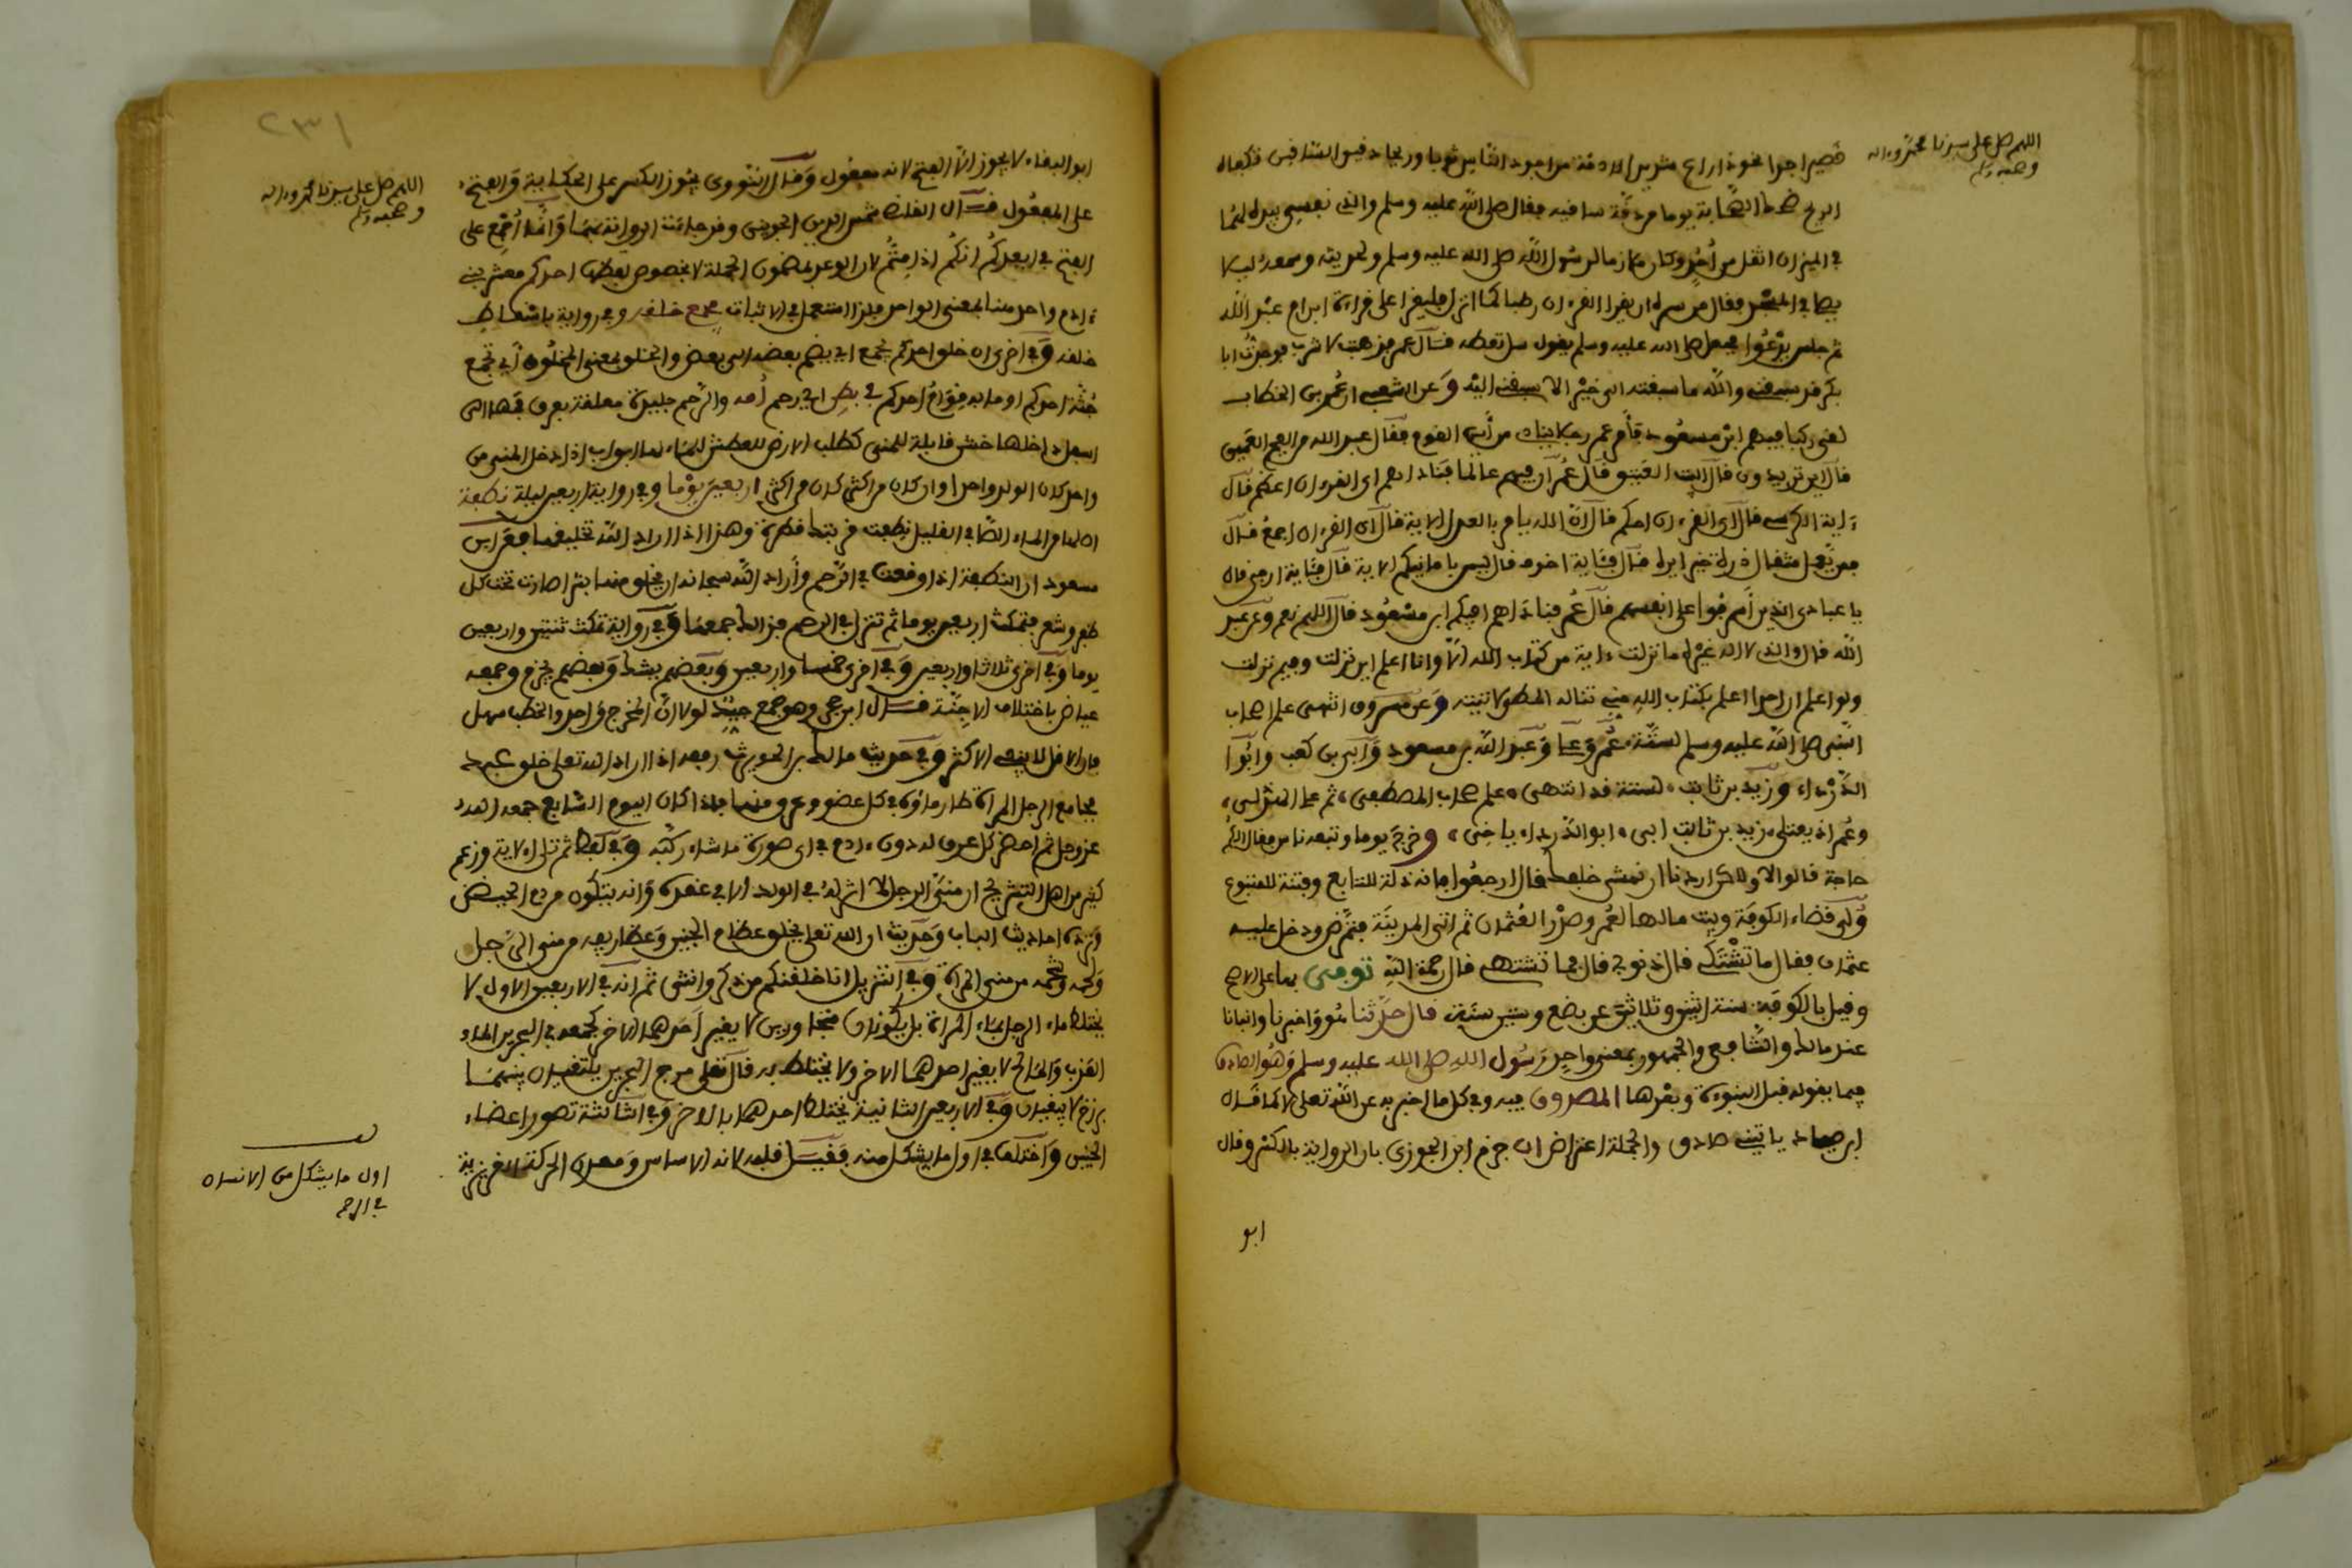 اللهم صل على سيدنا محمد وءاله
وصحبه وسلم
قصيرا جدا نحو ذراع شديد الادمة من اجود الناس ثوبا وريحا دقيق الساقين فكفاه
الريح ضحك الصحابة يوما من دقة ساقيه فقال صلى الله عليه وسلم والذي نفسي بيده لهما
في الميزان اثقل من أحد وكان ملازما لرسول الله صلى الله عليه وسلم
فقال من سره ان يقرا القرءان رطبا كما انزل فليقرا على قراءة ابن ام عبد الله
ثم جلس يدعوا فجعل صلى الله عليه وسلم يقول سل تعطه قال عمر فذهبت لابشره فوجدت ابا
بكر قد سبقني والله ما سبقته الى خير الا سبقني اليه وعن الشعبي ان عمر بن الخطاب
لقي ركبا فيهم ابن مسعود فأمر عمر رجلا يناديهم من أين القوم فقال عبد الله من الفج العميق
قال اين تريدون قال البيت العتيق قال عمر ان فيهم عالما فناداهم اي القرءان اعظم قال
ءاية الكرسي قال اى القرءان احكم قال ان الله يامر بالعدل الاية قال اى القرءان اجمع قال
فمن يعمل مثقال ذرة خيرا يره قال فأية اخوف قال ليس بامانيكم الاية قال فأية ارجى قال
يا عبادى الذين أسرفوا على انفسهم قال عمر فناداهم افيكم ابن مسعود قال اللهم نعم وعن عبد
الله قال والذى لا اله غيره ما نزلت ءاية من كتاب الله الا وانا اعلم اين نزلت وفيم نزلت
ولو اعلم ان احدا اعلم بكتاب الله مني تناله المطي لاتيته وعن مسروق انتهى علم اصحاب
النبى صلى الله عليه وسلم لستة عمر وعلي وعبد الله بن مسعود وأبي بن كعب وابوا
الدرداء وزيد بن ثابت لستة قد انتهى علم صحاب المصطفى ثم على المرتضى
وعمر زيد بن ثابت ابى ابو الدرداء ياخى وخرج يوما وتبعه ناس فقال الكم
حاجة قالوا لا ولكن اردنا ان نمشى خلفك قال ارجعوا فانه ذلة للتابع وفتنة للمتبوع
ولي قضاء الكوفة وبيت مالها لعمر وصدرا لعثمان ثم اتى المدينة فتمرض ودخل عليه
عثمان فقال ما تشتكي قال ذنوبي قال فما تشتهي قال رحمة الله توفي بها على الاصح
وقيل بالكوفة سنة اثنين وثلاثين عن بضع وستين سنة قال حدثنا هو واخبرنا وانبانا
عند مالك والشافعى والجمهور بمعنى واحد رسول الله صلى الله عليه وسلم وهو الصادق
فيما يقوله قبل النبوءة وبعدها المصدوق فيه وفي كل ما اخبر به عن الله تعلى كما قال
ابن صياد ياتيني صادق والجملة اعتراض ان جزم ابن الجوزى بان الرواية بالكسر وقال
ابو
٢٣١
اللهم صل على سيدنا محمد وءاله
وصحبه وسلم
ابو البقاء لا يجوز الا الفتح لانه مفعول وقال النووى يجوز الكسر على الحكاية والفتح
على المفعول قال القاضي شمس الدين الجويني وقد جاءت الرواية بهما وانما اجمع على
الفتح في ايعدكم انكم اذا متم لان الوعد بمضمون الجملة لا بخصوص لفظها احدكم معشر بني
ءادم واحد هنا بمعنى الواحد فلذا استعمل في الاثبات يجمع خلقه وفي رواية باسقاط
خلقه وفي اخرى ان خلق احدكم يجمع اي يضم بعضه الى بعض والخلق بمعنى المخلوق أي تجمع
جثة احدكم او ما به قوام احدكم في بطن اي رحم أمه والرحم جليدة معلقة بعرق فمها الى
اسفل داخلها خشن قابلة للمني كطلب الارض للعطش للماء لها ابواب اذا دخل المني من
واحد كان الولد واحدا وان كان من اكثر كان من اكثر اربعين يوما وفي رواية اربعين ليلة نطفة
اصلها من الماء الصافي القليل نطفت قربتك قطرت وهذا اذا اراد الله تخليقها فعن ابن
مسعود ان النطفة اذا وقعت في الرحم وأراد الله سبحانه ان يخلق منها بشرا صارت تحت كل
ظفر وشعر فتمكث اربعين يوما ثم تنزل في الرحم فذالك جمعها وفي رواية تمكث ثنتين واربعين
يوما وفي اخرى ثلاثا واربعين وفي اخرى خمسا واربعين وبعضهم يشك وبعضهم يجزم وجمعه
عياض باختلاف الاجنة قال ابن حجر وهو جمع جيد لولا ان المخرج واحد والخطب سهل
فان الاقل لا ينفي الاكثر وفي حديث مالك بن الحويرث رفعه اذا اراد الله تعلى خلق عبد
فجامع الرجل المرأة طار ماؤه في كل عضو وعرق منها فاذا كان اليوم السابع جمعه الله
عز وجل ثم احضر كل عرق له دون ءادم في اى صورة ما شاء ركبه وفي لفظ ثم تلا الاية وزعم
كثير من اهل التشريح ان مني الرجل لا اثر له في الولد الا في عقده وانه يتكون من دم الحيض
وترده احاديث الباب وحديث ان الله تعلى يخلق عظام الجنين وغضاريفه من مني الرجل
ولحمه وشحمه من مني المرأة وفي التنزيل انا خلقنكم من ذكر وانثى ثم انه في الاربعين الاول لا
يختلط ماء الرجل بماء المرأة بل يكونان متجاورين لا يغير احدهما الاخر كجمعه في البحرين الماء
العذب والمالح لا يغير احدهما الاخر ولا يختلط به قال تعلى مرج البحرين يلتقيان بينهما
برزخ لا يبغيان وفي الاربعين الثانية يختلط احدهما بالاخر وفي الثالثة تصور اعضاء
الجنين واختلف في اول ما يشكل منه فقيل قلبه لانه الاساس ومعدن الحركة الغريزية
اول ما يشكل من الانسان
في الرحم